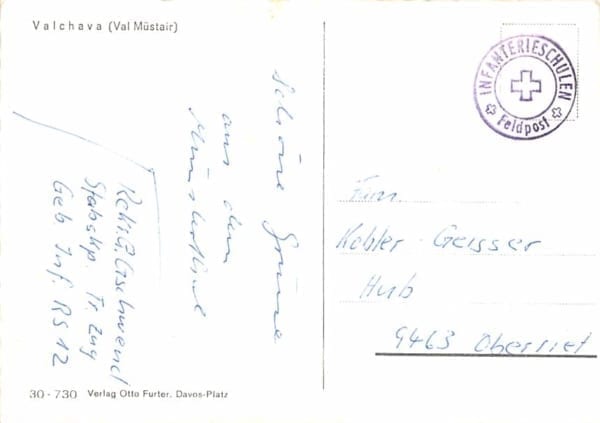 Valchava (Val Müstair)
INFANTERIESCHULEN
Feldpost
Schöne Grüsse
aus dem
Münstertal
Rekr. G. Gschwend
Stabskp. Tr. Zug
Geb Inf. RS 12
Fam.
Kobler-Geisser
Hub
9463 Oberriet
30-730 Verlag Otto Furter, Davos-Platz